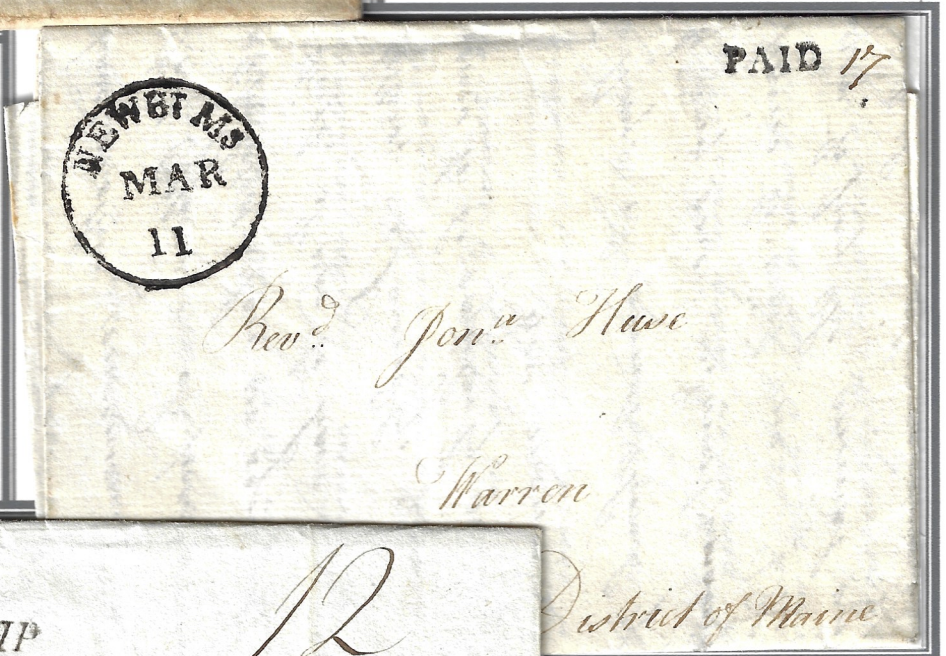 PAID 17
NEWBY MS
MAR
11
Revd. Jona Huse
Warren
District of Maine
12
IP